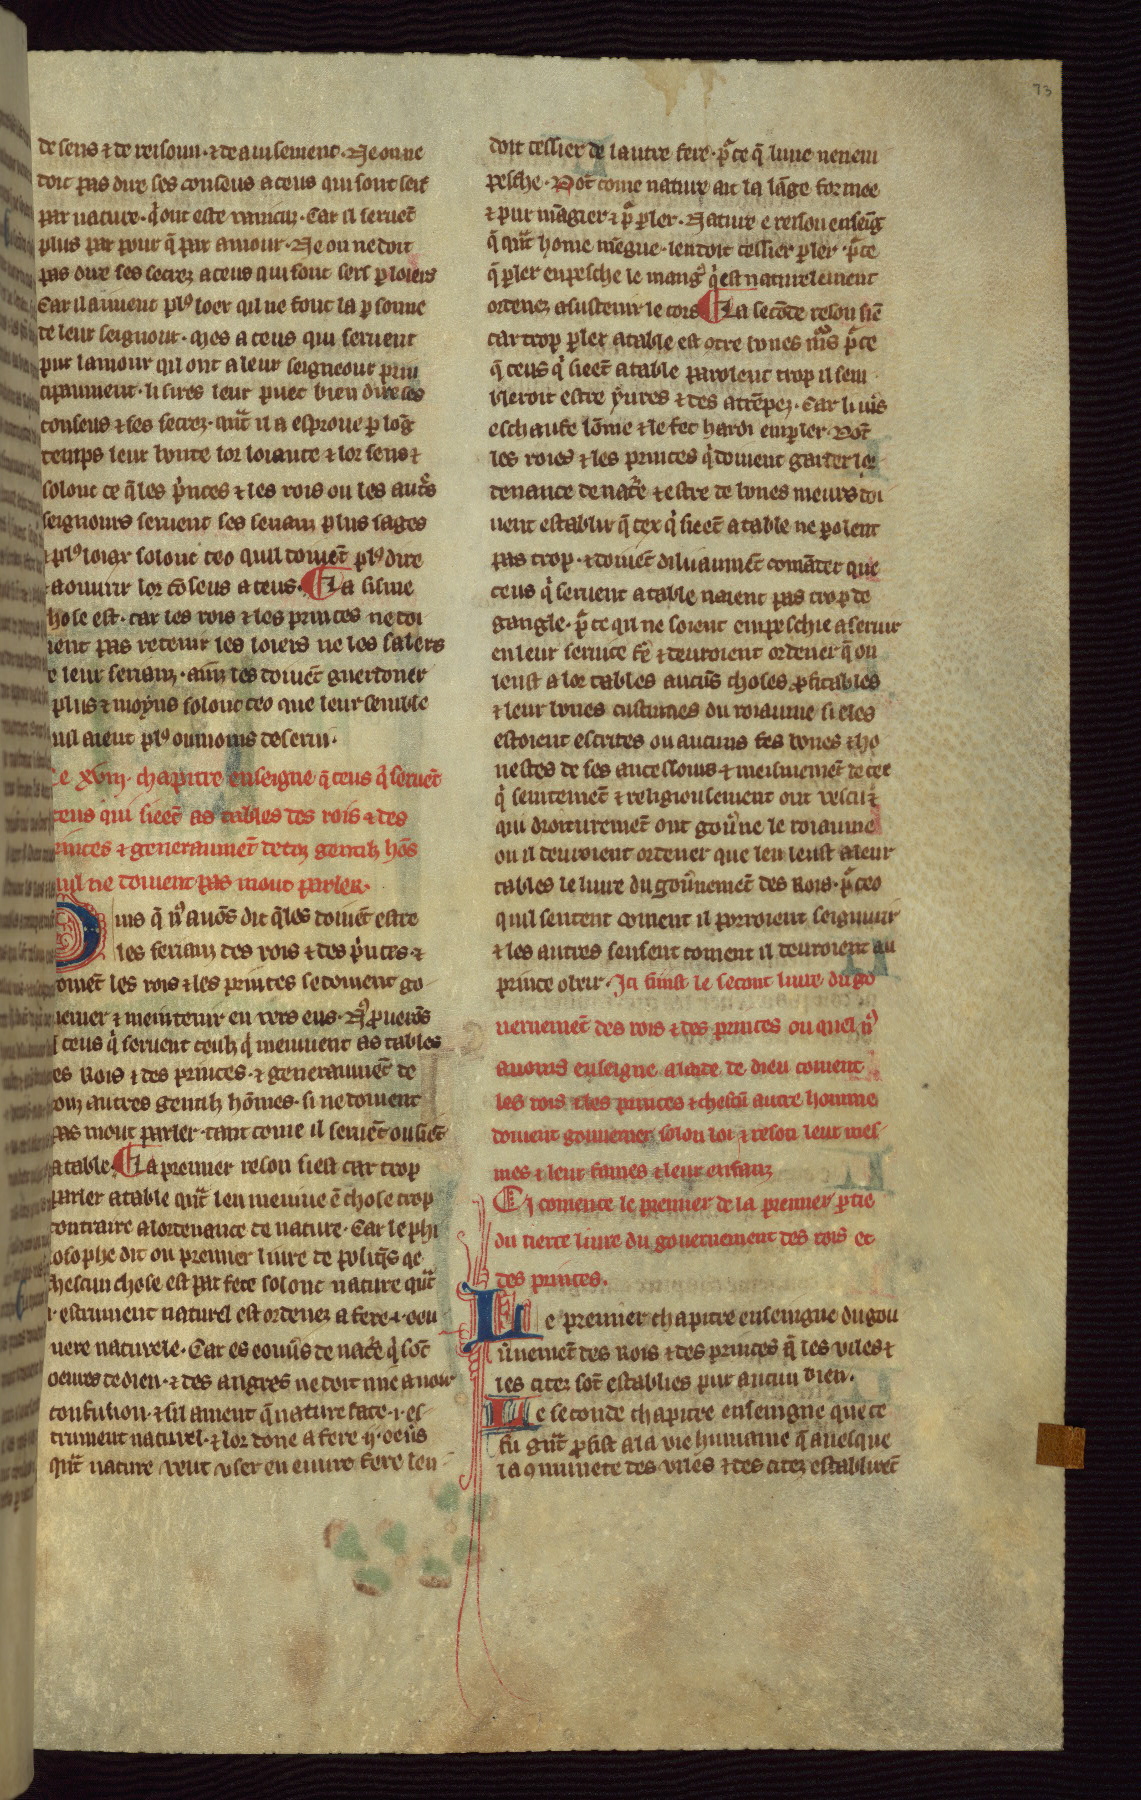 73
de sens ⁊ de reisoun · ⁊ de auisement · Ne on ne
doit pas dire ses conseus a ceus qui sont serf
par nature · q̇ ont este vaincuz · Car il seruēt
plus par pour q̄ par amour · Ne on ne doit
pas dire ses secrez a ceus qui sont sers ꝑ loiers
Car il aiment plꝰ loer qil ne font la ꝑsonne
de leur seignour · Mes a ceus qui seruent
pur lamour qil ont a leur seigneour prin
cipaument · li sires leur puet bien dire ses
conseus ⁊ ses secrez · qn̄t il a esproue ꝑ lōg
temps leur bonte lor loiaute ⁊ lor sens ⁊
solonc ce q̄ les pⁱnces ⁊ les rois ou les autˢ
seignours seruent ses serianz plus sages
⁊ plꝰ loiax solonc ceo quil doiuēt plꝰ dire
⁊ aouurir lor cōseus a ceus · ¶ La sisme
chose est · car les rois ⁊ les princes ne doi
uent pas retenir les loiers ne les salers
de leur serianz · ainz les doiuēt guerdoner
plus ⁊ moyns solonc ceo que leur semble
quil aient plꝰ ou moins deserui ·
Le xviij · chapitre enseigne q̄ ceus q̇ seruēt
⁊ ceus qui sieēt as tables des rois ⁊ des
princes ⁊ generaumēt de toz gentilz hōs
quil ne doiuent pas mout parler ·
Puis q̄ nꝰ auōs dit q̄les doiuēt estre
les serianz des rois ⁊ des pⁱnces ⁊
coment les rois ⁊ les princes se doiuent go
uerner ⁊ meintenir en uers eus · Nꝰ ꝓuerōs
q̄ ceus q̇ seruent ceulz q̇ meniuent as tables
des Rois ⁊ des princes · ⁊ generaumēt de
touz autres gentilz hōmes · si ne doiuent
pas mout parler · tant come il seruēt ou siēt
a table ¶ La premier reson si est car trop
parler a table qn̄t len meniue ē chose trop
contraire a lordenance de nature · Car le phi
losophe dit ou premier liure de politiq̄s qe
chescun chose est parfete solonc nature qn̄t
·i· estrument naturel est ordenez a fere ·i· oeu
uere naturele · Car es eouuˢ de natᵉ q̇ sōt
oeures de dieu · ⁊ des angres ne doit nue auoir
confusion · ⁊ sil auient q̄ nature face ·i· es
trument naturel · ⁊ lor done a fere ·ij· oeuˢ
qn̄t nature veut vser en eiuure fere len
doit cessier de lautre fere · p̄ ce q̄ lune nenem
pesche · Dōt come nature ait la lāge formee
⁊ pur māgier ⁊ p̄ ꝑler · Nature e reison enseig
q̄ qn̄t home mēgue · len doit cessier ꝑler · p̄ ce
q̄ ꝑler enpesche le mangˢ q̇ est naturelement
ordenez a sustenir le cors ¶ La secōde reson siē
car trop ꝑler a table est otre bones mˢ p̄ ce
q̄ ceus q̇ sieēt a table parolent trop il sem
bleroit estre yures ⁊ des atrēpez · Car li uis
eschaufe lōme ⁊ le fet hardi en ꝑler · Dōt
les roies ⁊ les princes q̇ doiuent garder lor
denance de natᵉ ⁊ estre de bones meurs doi
uent establir q̄ cex q̇ sieēt a table ne ꝑolent
pas trop · ⁊ doiuēt diliiaumēt comāder que
ceus q̇ seruent a table naient pas trop de
gangle · p̄ ce qil ne soient empeschie a seruir
en leur seruice fē ⁊ deuroient ordener q̄ on
leust a lor tables aucūs choses ꝓfitables
⁊ leur bones custumes du roiaume si eles
estoient escrites ou aucuns fes bones ⁊ ho
nestes de ses ancessours ⁊ meismemēt de cee
q̇ seintemēt ⁊ religiousement ont vescu ⁊
qui droituremēt ont goūne le roiaume
ou il deuroient ordener que len leust a leur
tables le liure du goūnemēt des Rois · p̄ ceo
quil sentent coment il porroient seignurir
⁊ les autres seusent coment il deuroient au
prince obeir · Ici finist le secont liure du go
uernemēt des rois ⁊ des princes ou quel nꝰ
auons enseigne a laide de dieu coment
les rois ⁊ les princes ⁊ chescū autre homme
doiuent gouuerner solon loi ⁊ reson leur mes
mes ⁊ leur fames ⁊ leur enfanz
Ci comence le premier de la premier ꝑtie
du tierce liure du gouernement des rois et
des princes.
Le premier chapitre enseingne du gou
ūnemēt des Rois ⁊ des princes q̄ les viles ⁊
les citez sōt establies pur aucun bien ·
Le seconde chapitre enseingne que ce
fu gn̄t ꝓfist a la vie humaine q̄ auesque
la ꝯmunete des viles ⁊ des citez establirēt